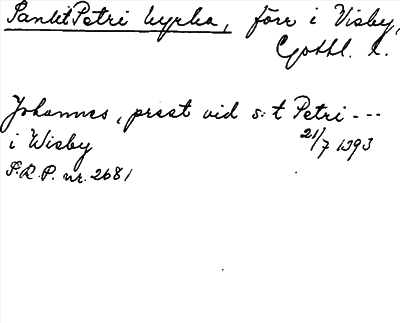 Sankt Petri kyrka, förr i Visby,
Gottl. l.
Johannes, prest vid s:t Petri ---
i Wisby 21/7 1393
S.R.P. nr. 2681